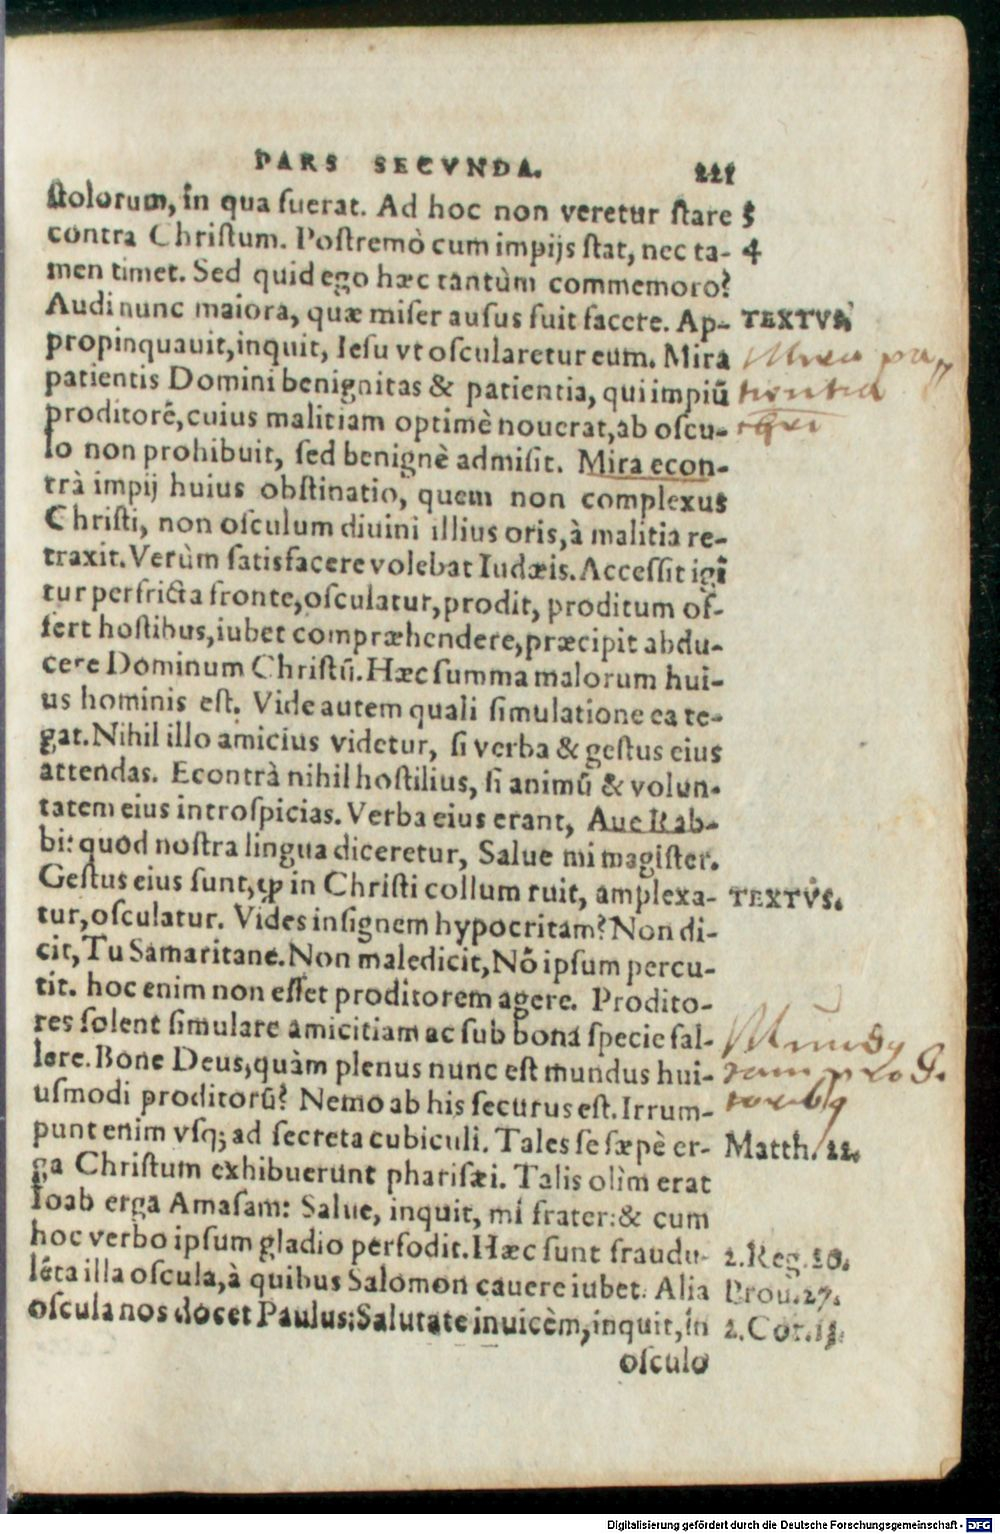 PARS SECVNDA. 221
ſtolorum, in qua fuerat. Ad hoc non veretur ſtare 3
contra Chriſtum. Poſtremò cum impijs ſtat, nec ta- 4
men timet. Sed quid ego hæc tantùm commemoro?
Audi nunc maiora, quæ miſer auſus fuit facere. Ap- TEXTVS.
propinquauit, inquit, Ieſu vt oſcularetur eum. Mira
patientis Domini benignitas & patientia, qui impiū
proditorē, cuius malitiam optimè nouerat, ab oſcu-
lo non prohibuit, ſed benignè admiſit. Mira econ-
trà impij huius obſtinatio, quem non complexus
Chriſti, non oſculum diuini illius oris, à malitia re-
traxit. Verùm ſatisfacere volebat Iudæis. Acceſſit igī
tur perfricta fronte, oſculatur, prodit, proditum of-
fert hoſtibus, iubet compræhendere, præcipit abdu-
cere Dominum Chriſtū. Hæc ſumma malorum hui-
us hominis eſt. Vide autem quali ſimulatione ea te-
gat. Nihil illo amicius videtur, ſi verba & geſtus eius
attendas. Econtrà nihil hoſtilius, ſi animū & volun-
tatem eius introſpicias. Verba eius erant, Aue Rab-
bi: quod noſtra lingua diceretur, Salue mi magiſter.
Geſtus eius ſunt, ꝙ in Chriſti collum ruit, amplexa- TEXTVS.
tur, oſculatur. Vides inſignem hypocritam? Non di-
cit, Tu Samaritane. Non maledicit, Nō ipſum percu-
tit. hoc enim non eſſet proditorem agere. Prodito-
res ſolent ſimulare amicitiam ac ſub bona ſpecie fal-
lere. Bone Deus, quàm plenus nunc eſt mundus hui-
uſmodi proditorū? Nemo ab his ſecurus eſt. Irrum-
punt enim vſq; ad ſecreta cubiculi. Tales ſe ſæpè er- Matth. 22.
ga Chriſtum exhibuerunt phariſæi. Talis olìm erat
Ioab erga Amaſam: Salue, inquit, mi frater: & cum
hoc verbo ipſum gladio perfodit. Hæc ſunt fraudu- 2. Reg. 20.
lēta illa oſcula, à quibus Salomon cauere iubet. Alia Prou. 27.
oſcula nos docet Paulus: Salutate inuicèm, inquit, in 2. Cor. 13.
oſculo
Digitalisierung gefördert durch die Deutsche Forschungsgemeinschaft - DFG